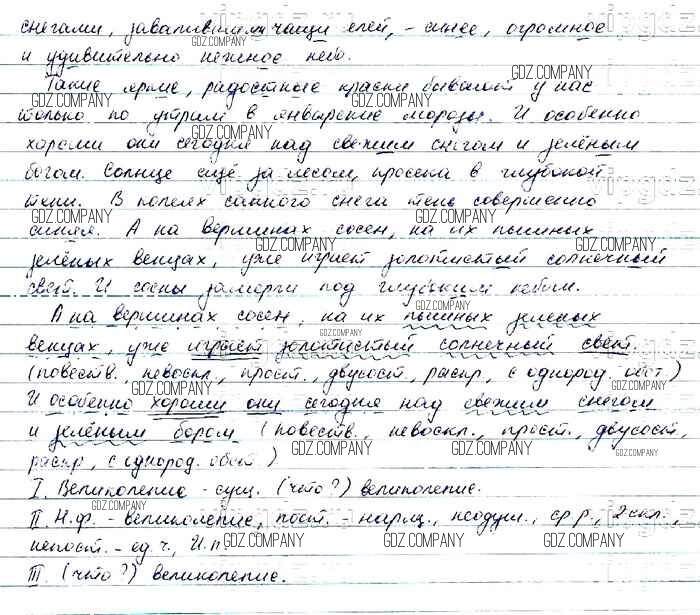 снегами, завалившими чащи елей, - синее, огромное
и удивительно нежное небо.
Такие яркие, радостные краски бывают у нас
только по утрам в январские морозы. И особенно
хороши они сегодня над свежим снегом и зелёным
бором. Солнце ещё за лесом, просека в глубокой
тени. В полозьях санного снега тень совершенно
синяя. А на вершинах сосен, на их пышных
зелёных венцах, уже играет золотистый солнечный
свет. И сосны замерли под глубоким небом.
А на вершинах сосен, на их пышных зеленых
венцах, уже играет золотистый солнечный свет.
(повеств., невоскл., прост., двусост., распр., с однород. обст.)
И особенно хороши они сегодня над свежим снегом
и зелёным бором (повеств., невоскл., прост., двусост.,
распр., с однород. обст.)
I. Великолепие - сущ. (что?) великолепие.
II. Н.ф. - великолепие, пост. - нариц., неодуш., ср.р., 2 скл.,
непост. - ед.ч., И.п.
III. (что?) великолепие.
GDZ.COMPANY
vipgdz